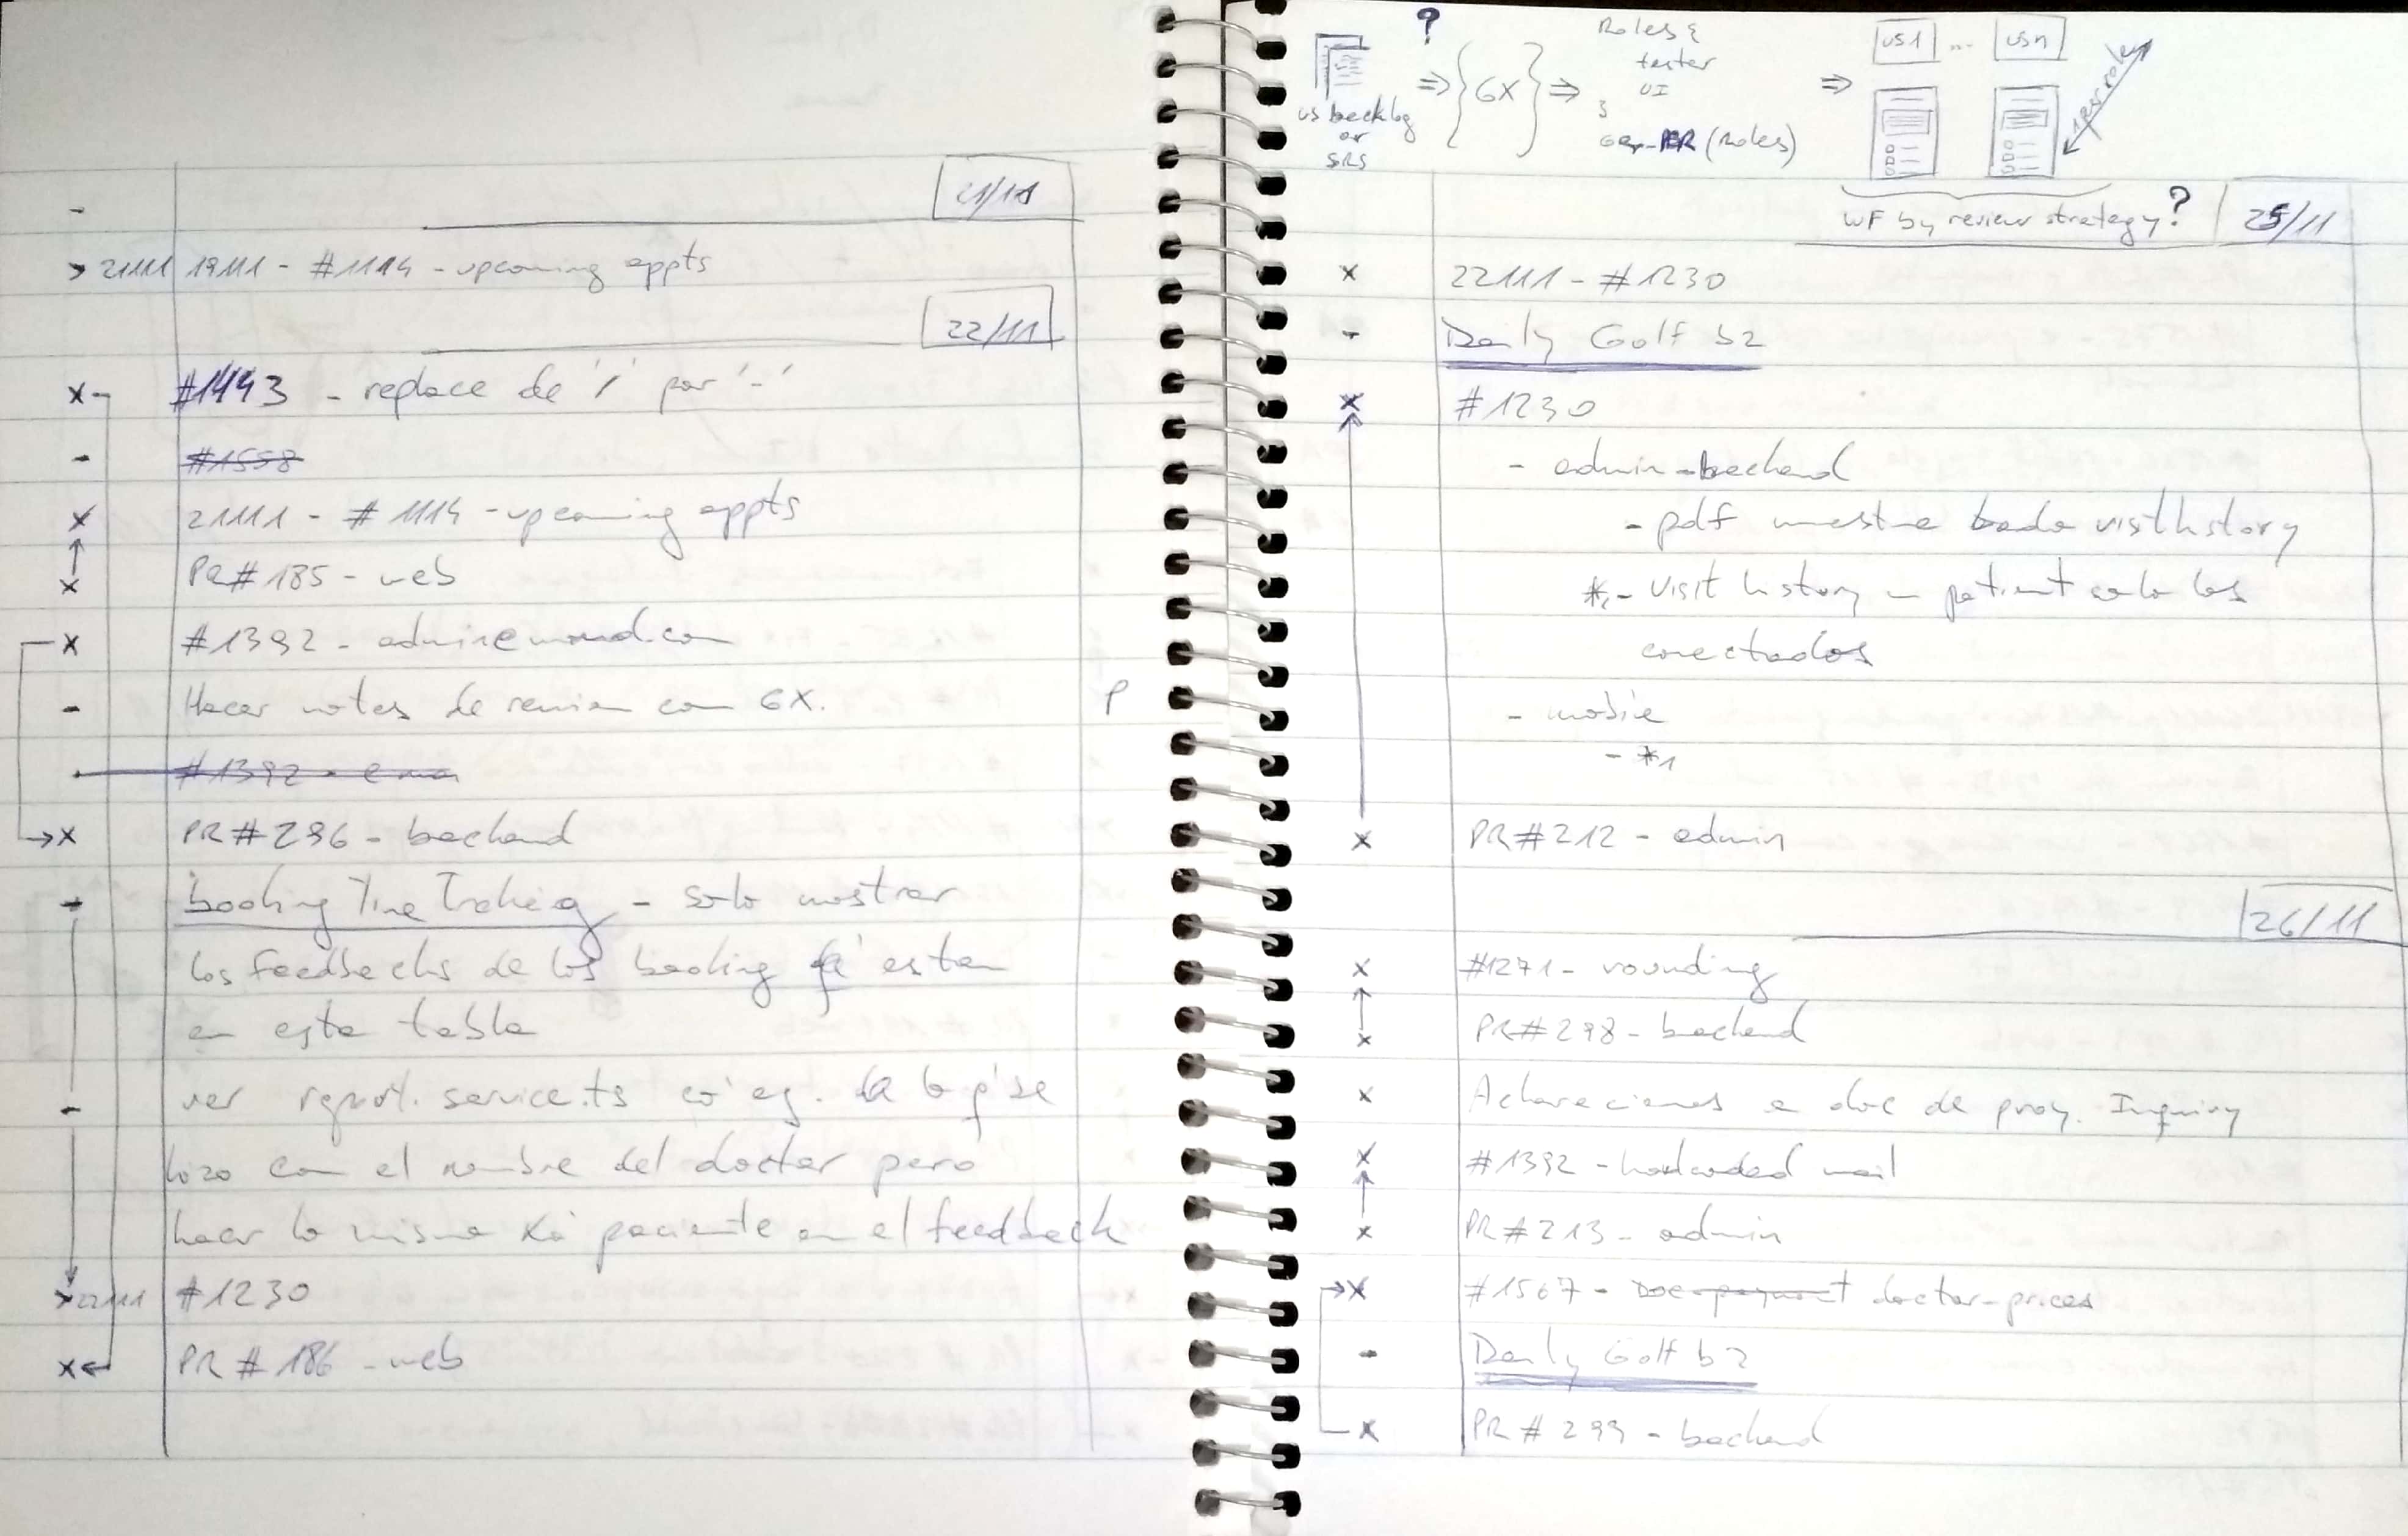 21/11
21111 19111 - #1114 - upcoming appts
22/11
#1443 - replace de '/' por '-'
#1558
21111 - #1114 - upcoming appts
PR#185 - web
#1392 - admin@
Hacer notas de con GX. P
#1392 -
PR#296 - backend
booking Time Traking - solo mostrar
los feedbacks de los booking q' estan
en esta tabla
ver report.service.ts eg. lo q' se
hizo con el nombre del doctor pero
hacer lo mismo paciente en el feedback
22111 #1230
PR#186 - web
?
US backlog
or
SRS
⇒ { GX } ⇒
Roles {
tester
UI
}
(Roles)
⇒
US1 ... USn
WF by review strategy?
25/11
22111 - #1230
Daily Golf b2
#1230
- admin-backend
- pdf muestre visithistory
*1 - Visit history patient solo los
conectados
- mobile
- *1
PR#212 - admin
26/11
#1271 - rounding
PR#298 - backend
Aclaraciones a doc de proy. Inquiry
#1392 - hardcoded mail
PR#213 - admin
#1567 - Doc-payment doctor-prices
Daily Golf b2
PR#299 - backend